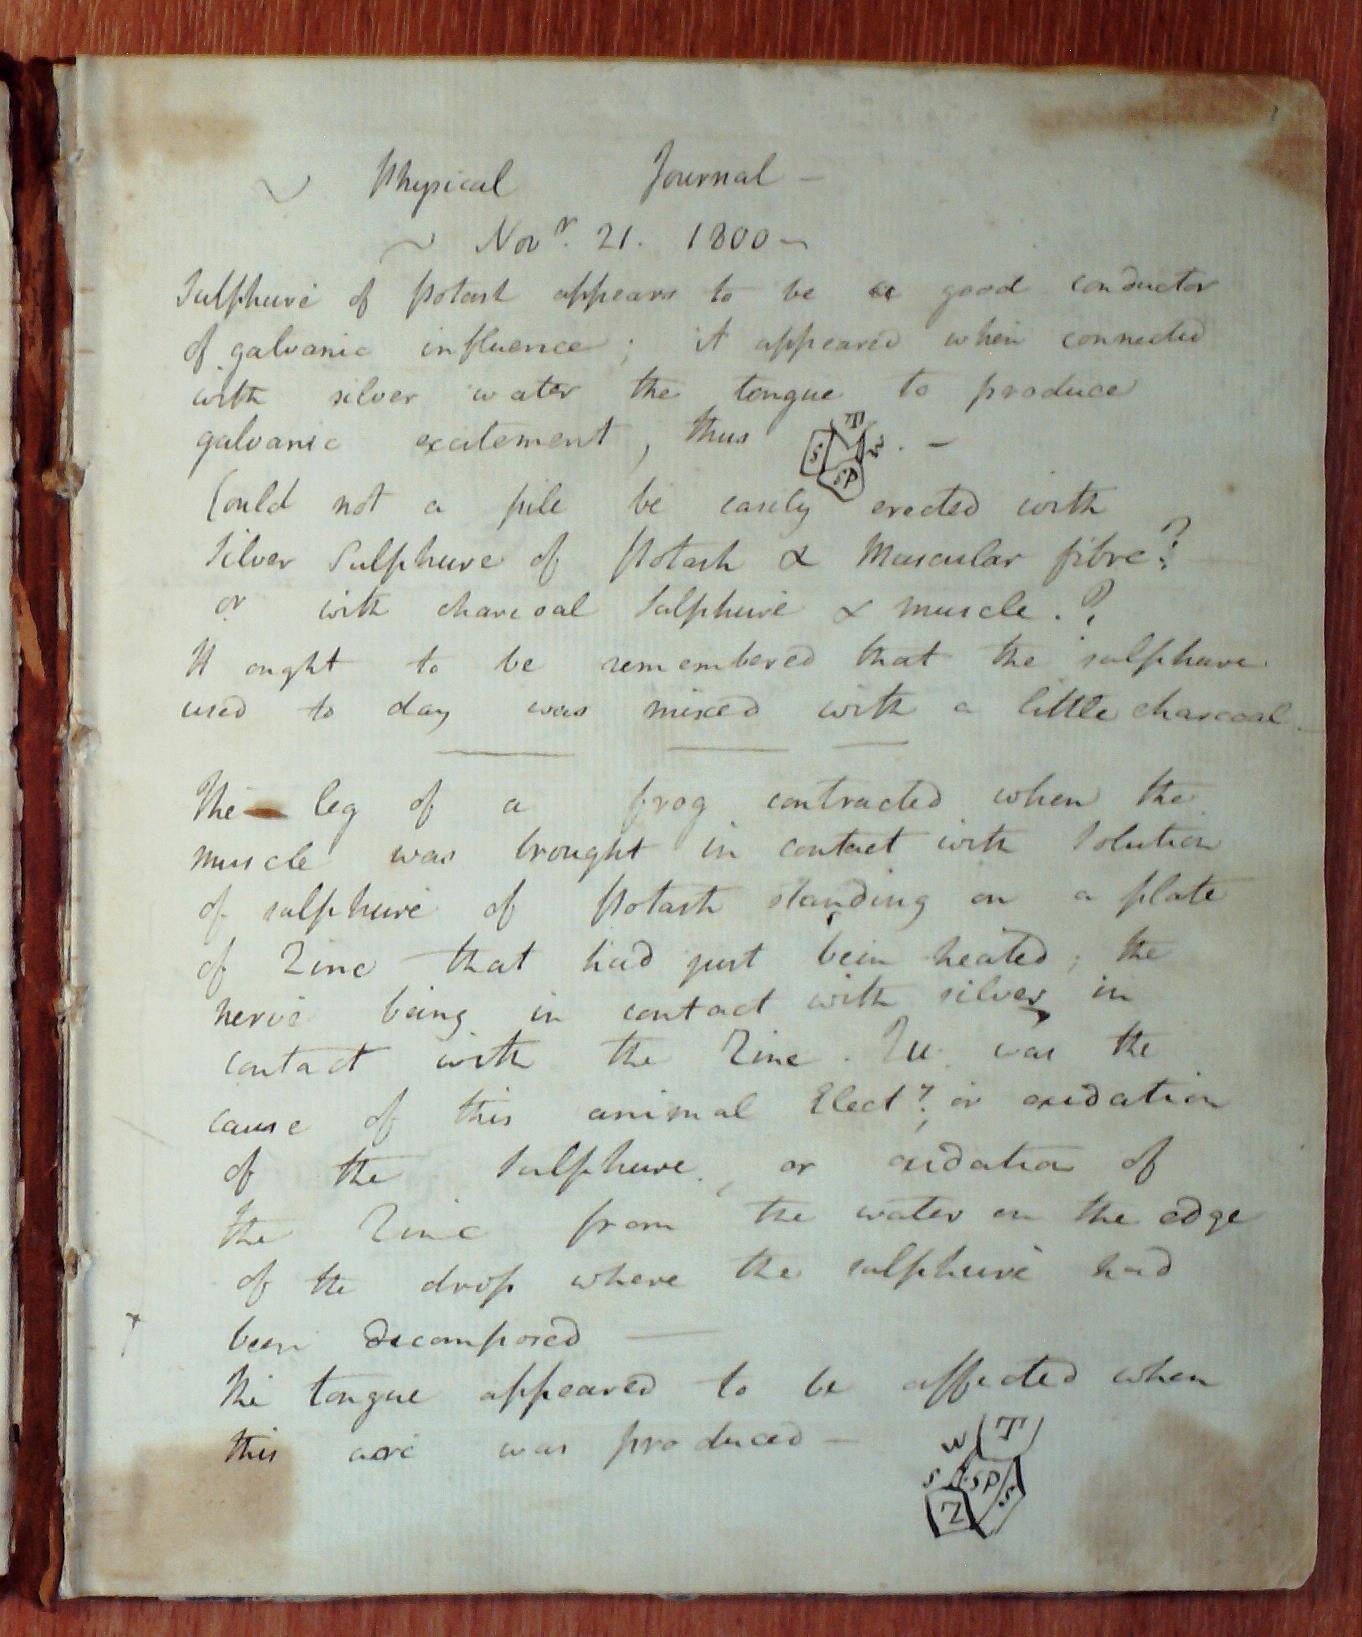 Physical Journal -
Novr. 21. 1800
Sulphure of Potash appears to be a good conductor
of galvanic influence; it appeared when connected
with silver water the tongue to produce
galvanic excitement, thus
T
S W. -
SP
Could not a pile be easily erected with
Silver Sulphure of Potash & Muscular fibre?
or with charcoal Sulphure & muscle.?
It ought to be remembered that the sulphure
used to day was mixed with a little charcoal
The leg of a frog contracted when the
muscle was brought in contact with solution
of sulphure of Potash standing on a plate
of Zinc that had just been heated; the
nerve being in contact with silver in
contact with the Zinc. Qu. was the
cause of this animal Elect? or oxidation
of the Sulphure, or oxidation of
the Zinc from the water on the edge
of the drop where the sulphure had
been decomposed
The tongue appeared to be affected when
this arc was produced -
W T
S SP S
Z